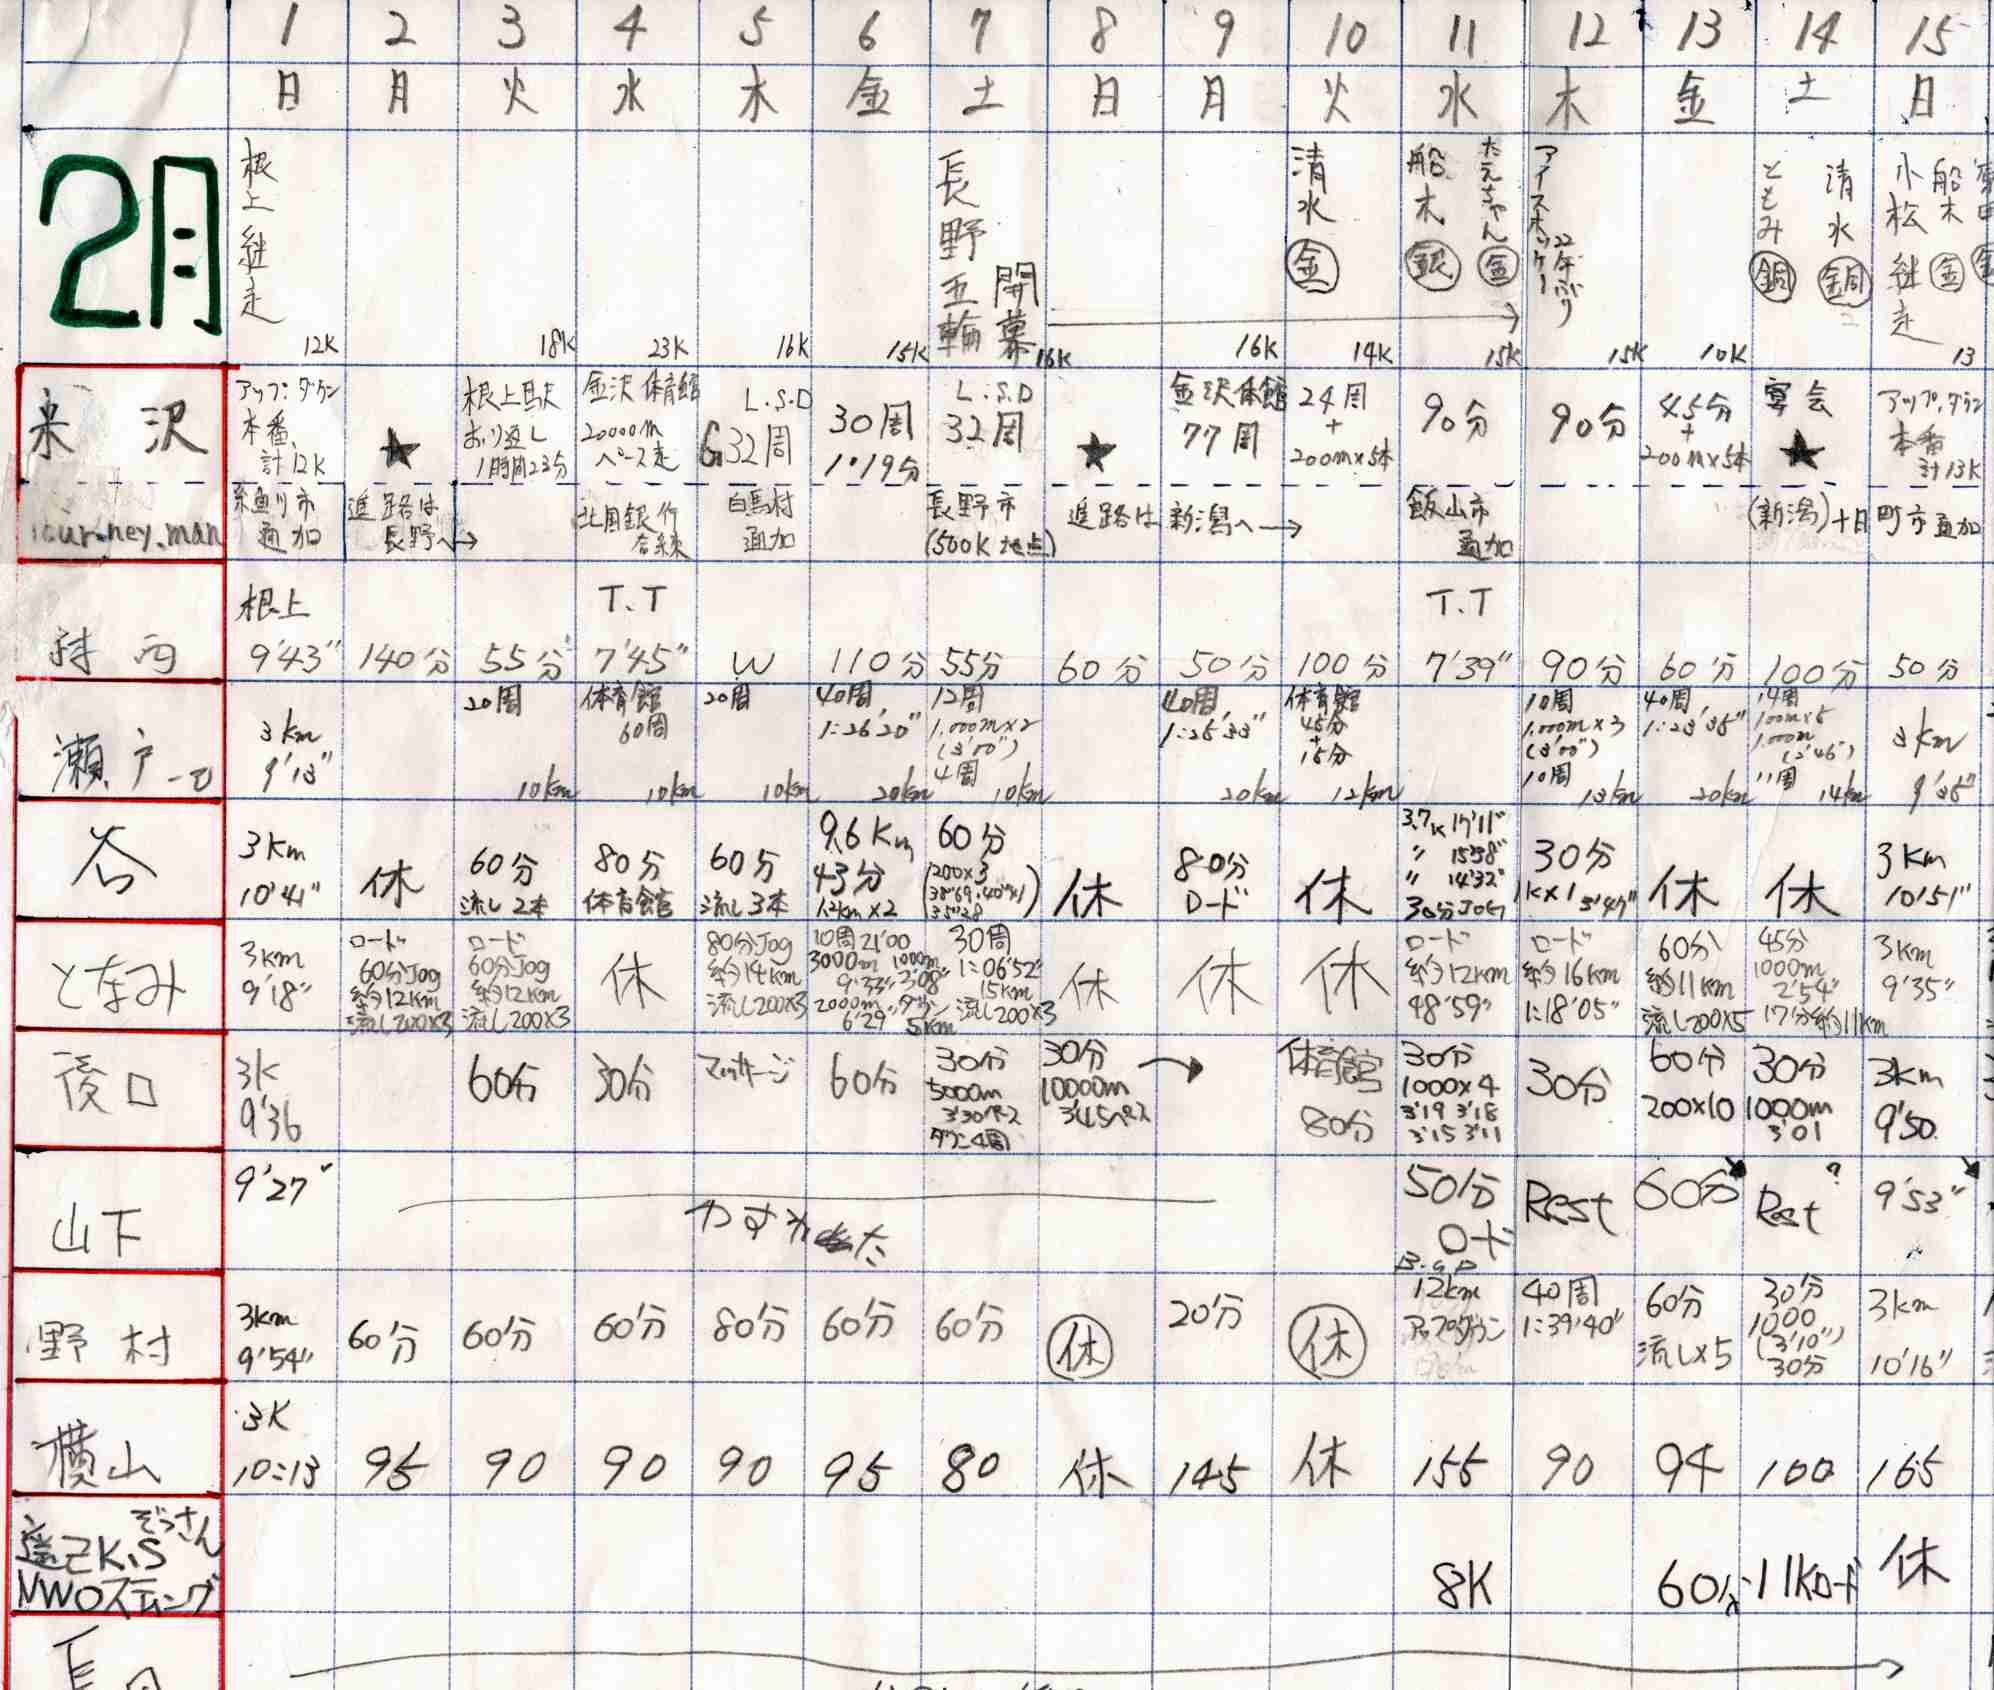 1 2 3 4 5 6 7 8 9 10 11 12 13 14 15
日 月 火 水 木 金 土 日 月 火 水 木 金 土 日
2月
根上継走
長野五輪
開幕
清水 金
船木 銀
たえちゃん 金
アイスホッケー
22年ぶり
清水 銅
ともみ 銅
船木 金
小松継走
12K 18K 23K 16K 15K 16K 16K 14K 15K 15K 10K 13
米沢
アップ・ダウン
本番、
計12K
★
根上駅
おり返し
1時間23分
金沢体育館
20000m
ペース走
L.S.D
G32周
30周
1°19分
L.S.D
32周
★
金沢体館
77周
24周
+
200m×5本
90分
90分
45分
+
200m×5本
宴会
★
アップ、ダウン
本番
計13K
journey.man
糸魚川市
通加
進路は
長野へ→
北国銀行
合練
白馬村
通加
長野市
(500K地点)
進路は 新潟へ→
飯山市
通加
(新潟)十日町市通加
根上
9'43"
140分
55分
T.T
7'45"
W
110分
55分
60分
50分
100分
T.T
7'39"
90分
60分
100分
50分
瀬戸
3km
9'13"
20周
10km
体育館
60周
10km
20周
10km
40周
1:26'20"
20km
12周
1.000m×2
(3'00")
4周
10km
40周
1:25'33"
20km
体育館
45分
+
15分
12km
10周
1.000m×3
(3'00")
10周
13km
40周
1:23'35"
20km
14周
100m×5
1.000m
(2'45")
11周
14km
3km
9'35"
谷
3km
10'41"
休
60分
流し2本
80分
体育館
60分
流し3本
9.6Km
43分
1.2km×2
60分
休
80分
ロード
休
3.7K 17'11"
" 15'38"
" 14'32"
30分JOG
30分
1k×1 3'47"
休
休
3Km
10'51"
となみ
3km
9'18"
ロード
60分Jog
約12km
流し200×3
ロード
60分Jog
約12km
流し200×3
休
80分Jog
約14km
流し200×3
10周 21'00
3000m 1000m
9'33" 3'08"
2000m ダウン
6'29" 5km
30周
1:06'52"
15km
流し200×3
休
休
休
ロード
約12km
48'59"
ロード
約16km
1:18'05"
60分
約11km
流し200×5
45分
1000m
2'54"
17分約11km
3km
9'35"
後口
3K
9'36
60分
30分
マッサージ
60分
30分
5000m
3'30ペース
ダウン4周
30分
10000m
3'45ペース
→
体育館
80分
30分
1000×4
3'19 3'18
3'15 3'11
30分
60分
200×10
30分
1000m
3'01
3km
9'50
山下
9'27"
やすみ
た
50分
ロード
Rest
60分
Rest ?
9'53"
野村
3km
9'54"
60分
60分
60分
80分
60分
60分
休
20分
休
12km
アップダウン
40周
1:39'40"
60分
流し×5
30分
1000
(3'10")
30分
3km
10'16"
横山
3K
10:13
95
90
90
90
95
80
休
145
休
155
90
94
100
165
ぞっさん
K.S
NWOスティング
8K
60分
11Kロード
休